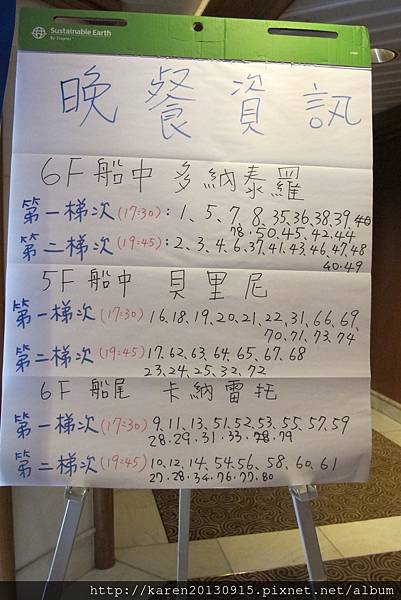 Sustainable Earth
By Staples
晚餐資訊
6F船中 多納泰羅
第一梯次(17:30):1、5、7、8、35、36、38、39
78、50、45、42、44
第二梯次(19:45):2、3、4、6、37、41、43、46、47、48
40、49
5F船中 貝里尼
第一梯次(17:30)16、18、19、20、21、22、31、66、69、
70、71、73、74
第二梯次(19:45)17、62、63、64、65、67、68
23、24、25、32、72
6F船尾 卡納雷托
第一梯次(17:30)9、11、13、51、52、53、55、57、59
28、29、31、33、78、79
第二梯次(19:45)10、12、14、54、56、58、60、61
27、28、34、76、77、80
http://karen20130915.pixnet.net/album